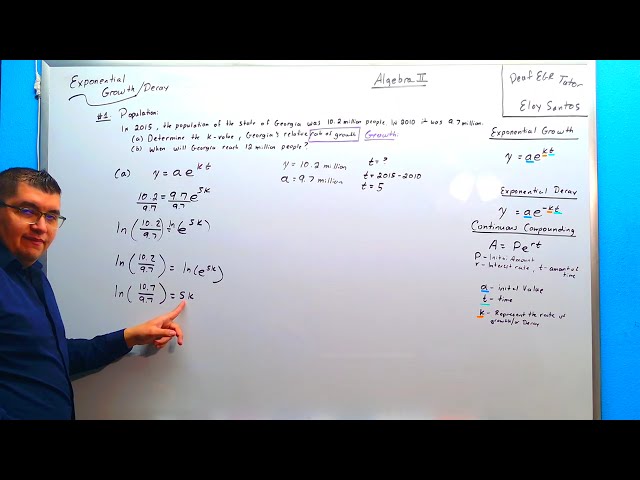 Exponential
Growth/Decay
Algebra II
Deaf EGR Tutor
Eloy Santos
#1: Population:
In 2015, the population of the state of Georgia was 10.2 million people. In 2010 it was 9.7 million.
(a) Determine the k-value, Georgia's relative rate of growth Growth.
(b) When will Georgia reach 12 million people?
(a) y = ae^kt
y = 10.2 million
a = 9.7 million
t = ?
t + 2015-2010
t = 5
10.2/9.7 = 9.7/9.7 e^5k
ln(10.2/9.7) = ln(e^5k)
ln(10.2/9.7) = ln(e^5k)
ln(10.7/9.7) = 5k
Exponential Growth
y = ae^kt
Exponential Decay
y = ae^-kt
Continuous Compounding
A = Pe^rt
P - Initial Amount
r - interest rate, t - amount of time
a - inital Value
t - time
k - Represent the rate of growth/or Decay